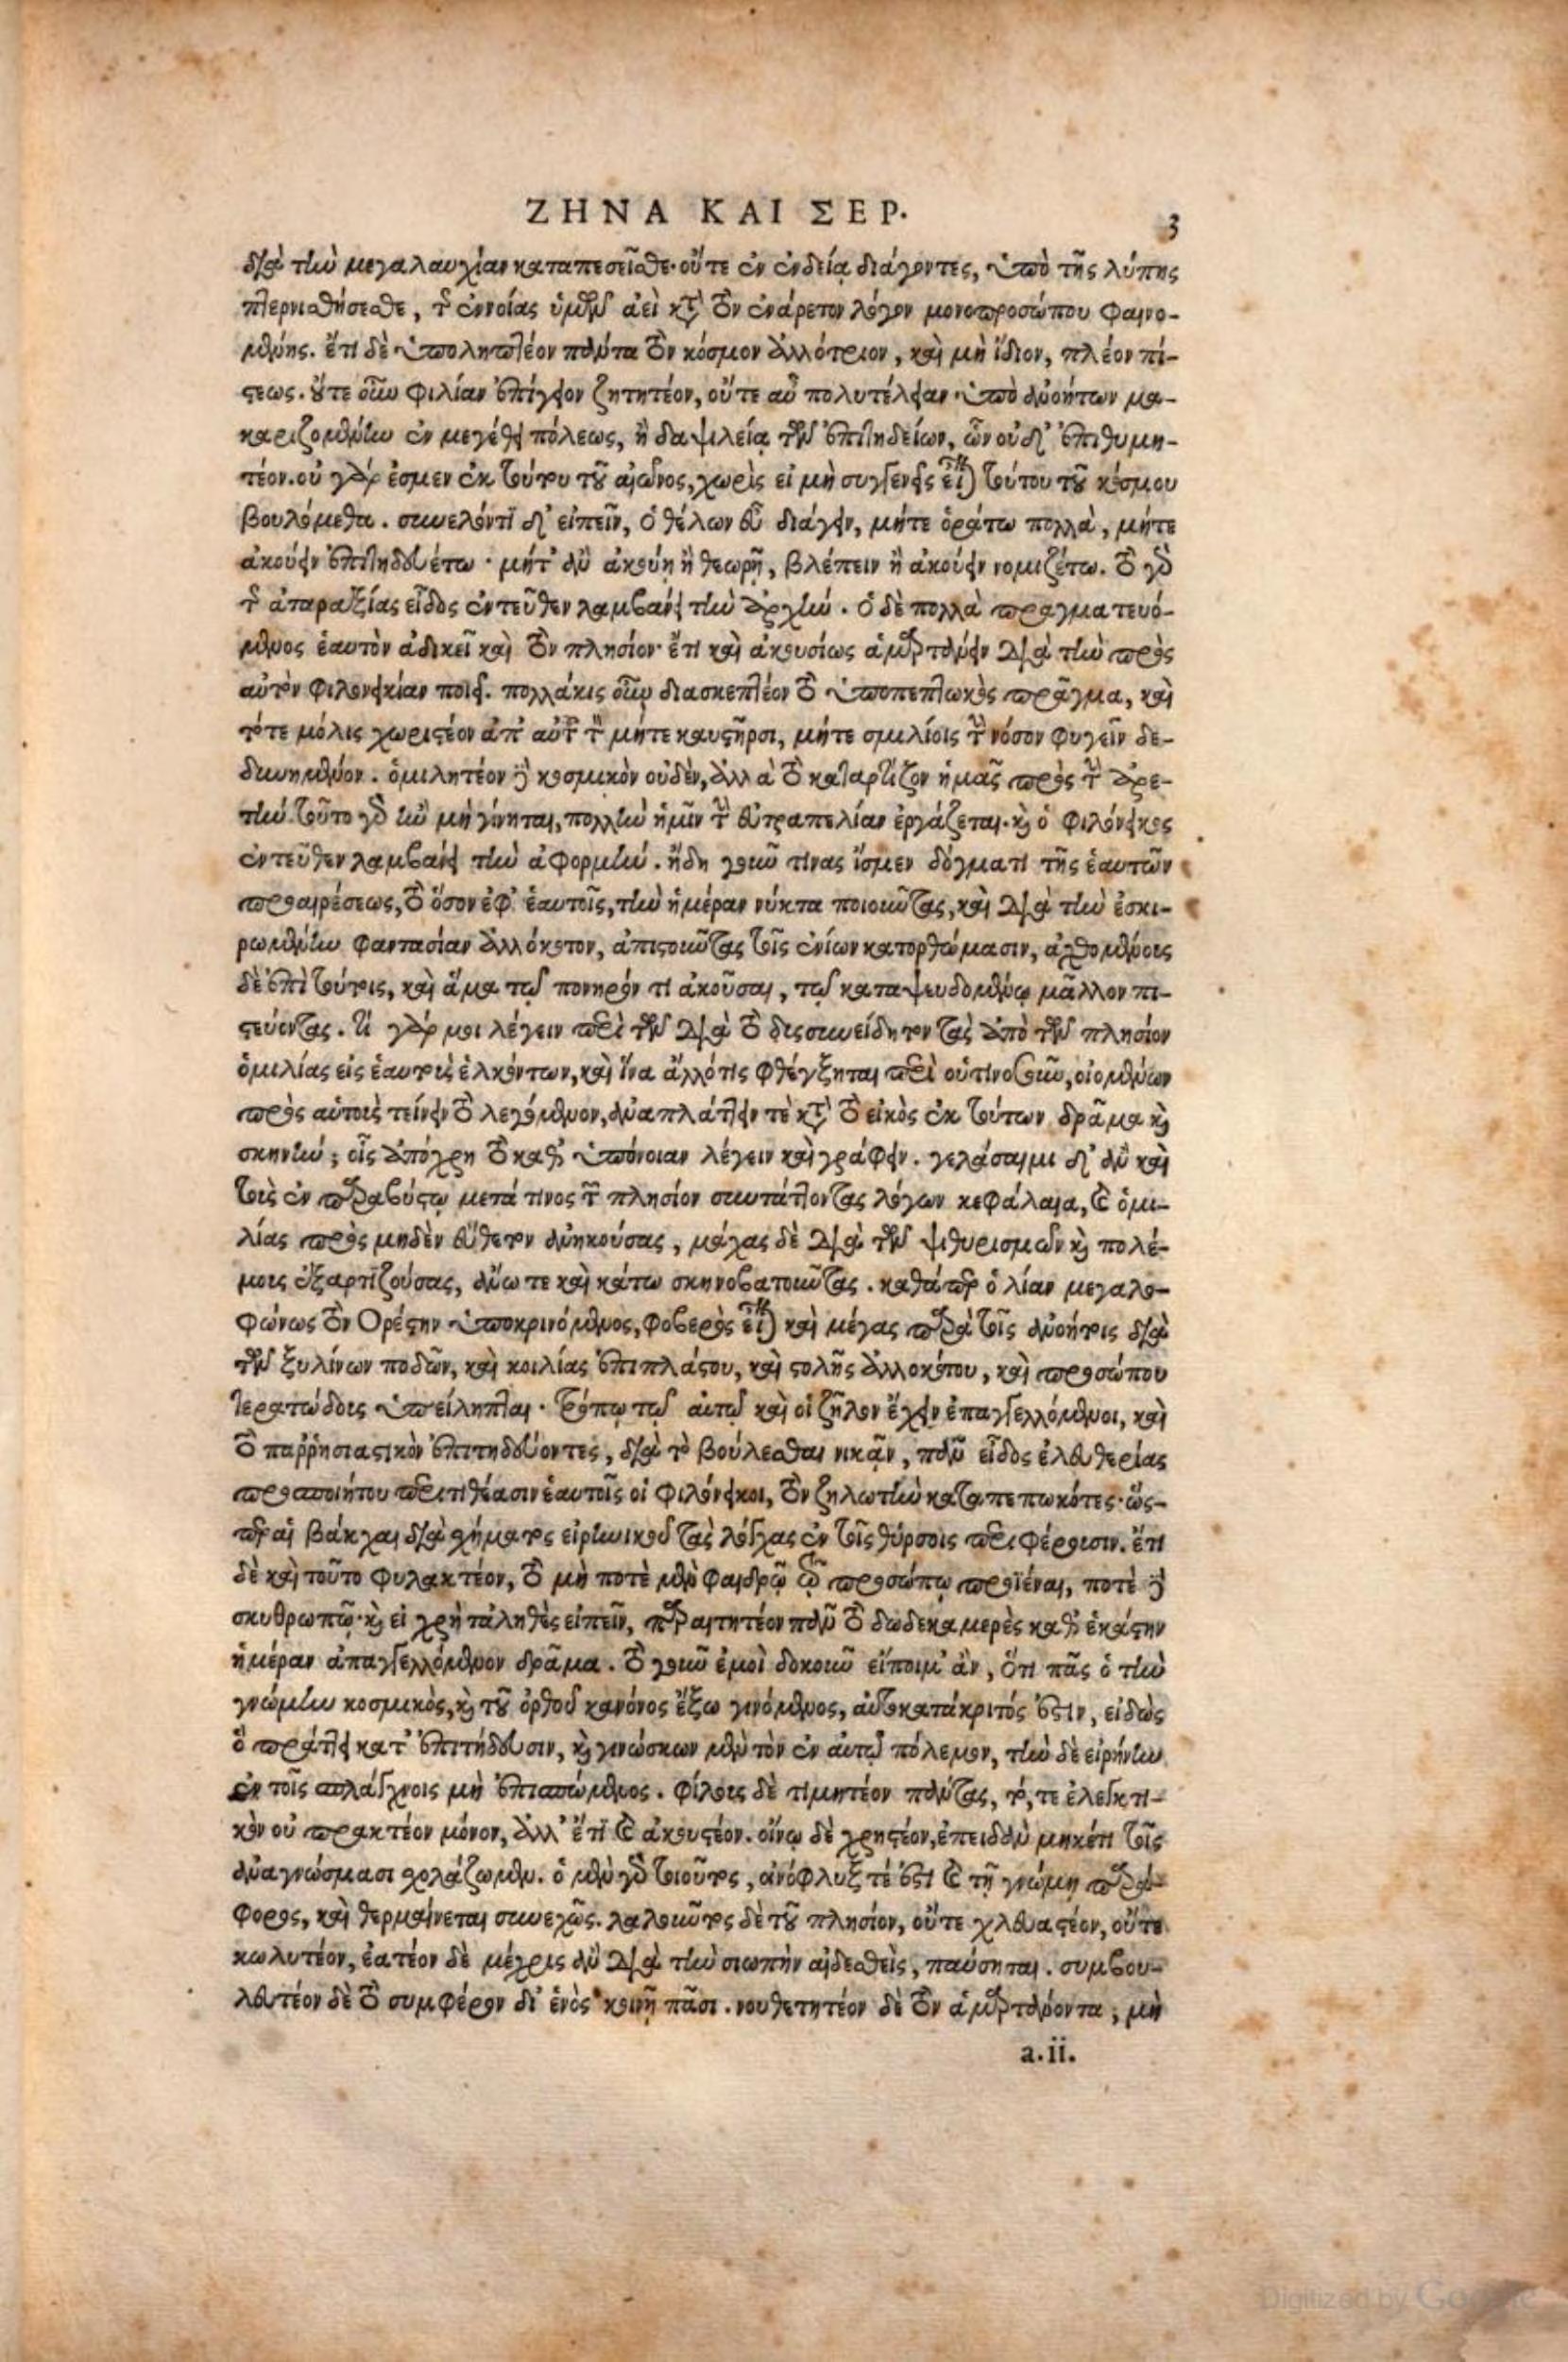 ΖΗΝΑ ΚΑΙ ΣΕΡ. 3
διὰ τὴν μεγαλαυχίαν καταπεσεῖσθε· οὔτε ἐν ἐνδείᾳ διάγοντες, ὑπὸ τῆς λύπης
πτερνισθήσεσθε, τῆς ἐννοίας ὑμῶν ἀεὶ κατὰ τὸν ἐνάρετον λόγον μονοπροσώπου φαινο-
μένης. ἔτι δὲ ὑποληπτέον πάντα τὸν κόσμον ἀλλότριον, καὶ μὴ ἴδιον, πλέον πί-
στεως. οὔτε οὖν φιλίαν ἐπίγειον ζητητέον, οὔτε αὖ πολυτέλειαν ὑπὸ ἀνοήτων μα-
καριζομένην ἐν μεγέθει πόλεως, ἢ δαψιλείᾳ τῶν ἐπιτηδείων, ὧν οὐδ' ἐπιθυμη-
τέον. οὐ γάρ ἐσμεν ἐκ τούτου τοῦ αἰῶνος, χωρὶς εἰ μὴ συγγενεῖς εἶναι τούτου τοῦ κόσμου
βουλόμεθα. συνελόντι δ' εἰπεῖν, ὁ θέλων εὖ διάγειν, μήτε ὁράτω πολλὰ, μήτε
ἀκούειν ἐπιτηδευέτω· μήτ' ἂν ἀκούῃ ἢ θεωρῇ, βλέπειν ἢ ἀκούειν νομιζέτω. τὸ γὰρ
τῆς ἀταραξίας εἶδος ἐντεῦθεν λαμβάνει τὴν ἀρχήν. ὁ δὲ πολλὰ πραγματευό-
μενος ἑαυτὸν ἀδικεῖ καὶ τὸν πλησίον· ἔτι καὶ ἀκουσίως ἁμαρτάνειν διὰ τὴν πρὸς
αὐτὸν φιλονεικίαν ποιεῖ. πολλάκις οὖν διασκεπτέον τὸ ὑποπεπτωκὸς πρᾶγμα, καὶ
τότε μόλις χωριστέον ἀπ' αὐτοῦ τοῦ μήτε καυστῆρσι, μήτε σμιλίοις τὴν νόσον φυγεῖν δε-
δυνημένον. ὁμιλητέον δὲ κοσμικὸν οὐδὲν, ἀλλὰ τὸ καταρτίζον ἡμᾶς πρὸς τὴν ἀρε-
τήν. τοῦτο γὰρ ἢν μὴ γίνηται, πολλὴν ἡμῖν τὴν εὐτραπελίαν ἐργάζεται. καὶ ὁ φιλόνεικος
ἐντεῦθεν λαμβάνει τὴν ἀφορμήν. ἤδη γοῦν τινας ἴσμεν δόγματι τῆς ἑαυτῶν
προαιρέσεως, τὸ ὅσον ἐφ' ἑαυτοῖς, τὴν ἡμέραν νύκτα ποιοῦντας, καὶ διὰ τὴν ἐσκι-
ρωμένην φαντασίαν ἀλλόκοτον, ἀπιστοῦντας τοῖς ἐνίων κατορθώμασιν, ἀχθομένοις
δὲ ἐπὶ τούτοις, καὶ ἅμα τῷ πονηρόν τι ἀκοῦσαι, τῷ καταψευδομένῳ μᾶλλον πι-
στεύοντας. τί γάρ μοι λέγειν περὶ τῶν διὰ τὸ δυσσυνείδητον τὰς ἀπὸ τῶν πλησίον
ὁμιλίας εἰς ἑαυτοὺς ἑλκόντων, καὶ ἵνα ἄλλό τις φθέγξηται περὶ οὑτινοσοῦν, οἰομένων
πρὸς αὐτοὺς τείνειν τὸ λεγόμενον, ἀναπλάττειν τὲ κατὰ τὸ εἰκὸς ἐκ τούτων δρᾶμα καὶ
σκηνήν; οἷς ἀπόχρη τὸ καθ' ὑπόνοιαν λέγειν καὶ γράφειν. γελάσαιμι δ' ἂν καὶ
τοὺς ἐν παραβύστῳ μετά τινος τῶν πλησίον συντάττοντας λόγων κεφάλαια, καὶ ὁμι-
λίας πρὸς μηδὲν εὔθετον ἀνηκούσας, μάχας δὲ διὰ τῶν ψιθυρισμῶν καὶ πολέ-
μους ἐξαρτιζούσας, ἄνω τε καὶ κάτω σκηνοβατοῦντας. καθάπερ ὁ λίαν μεγαλο-
φώνως τὸν Ορέστην ὑποκρινόμενος, φοβερὸς εἶναι καὶ μέγας παρὰ τοῖς ἀνοήτοις διὰ
τῶν ξυλίνων ποδῶν, καὶ κοιλίας ἐπιπλάστου, καὶ στολῆς ἀλλοκότου, καὶ προσώπου
τερατώδους ὑπείληπται· τρόπῳ τῷ αὐτῷ καὶ οἱ ζῆλον ἔχειν ἐπαγγελλόμενοι, καὶ
τὸ παῤῥησιαστικὸν ἐπιτηδεύοντες, διὰ τὸ βούλεσθαι νικᾷν, πᾶν εἶδος ἐλευθερίας
προσποιήτου περιτιθέασιν ἑαυτοῖς οἱ φιλόνεικοι, τὸν ζηλωτὴν καταπεπωκότες· ὥσ-
περ αἱ βάκχαι διὰ σχήματος εἰρηνικοῦ τὰς λόγχας ἐν τοῖς θύρσοις περιφέρουσιν. ἔτι
δὲ καὶ τοῦτο φυλακτέον, τὸ μὴ ποτὲ μὲν φαιδρῷ τῷ προσώπῳ προϊέναι, ποτὲ δὲ
σκυθρωπῷ· καὶ εἰ χρὴ τἀληθὲς εἰπεῖν, παραιτητέον πᾶν τὸ δωδεκαμερὲς καθ' ἑκάστην
ἡμέραν ἀπαγγελλόμενον δρᾶμα. τὸ γοῦν ἐμοὶ δοκοῦν εἴποιμ' ἂν, ὅτι πᾶς ὁ τὴν
γνώμην κοσμικὸς, καὶ τοῦ ὀρθοῦ κανόνος ἔξω γινόμενος, αὐτοκατάκριτός ἐστιν, εἰδὼς
ὃ πράττει κατ' ἐπιτήδευσιν, καὶ γινώσκων μὲν τὸν ἐν αὐτῷ πόλεμον, τὴν δὲ εἰρήνην
ἐν τοῖς σπλάγχνοις μὴ ἐπισπώμενος. φίλους δὲ τιμητέον πάντας, τό, τε ἐλεγκτι-
κὸν οὐ πρακτέον μόνον, ἀλλ' ἔτι καὶ ἀκουστέον. οἴνῳ δὲ χρηστέον, ἐπειδὰν μηκέτι τοῖς
ἀναγνώσμασι σχολάζωμεν. ὁ μὲν γὰρ τοιοῦτος, ἀνόφλυξ τέ ἐστι καὶ τῇ γνώμῃ παρά-
φορος, καὶ θερμαίνεται συνεχῶς. λαλοῦντος δὲ τοῦ πλησίον, οὔτε χλευαστέον, οὔτε
κωλυτέον, ἐατέον δὲ μέχρις ἂν διὰ τὴν σιωπὴν αἰδεσθεὶς, παύσηται. συμβου-
λευτέον δὲ τὸ συμφέρον δι' ἑνὸς κοινῇ πᾶσι. νουθετητέον δὲ τὸν ἁμαρτάνοντα, μὴ
a.ii.
Digitized by Google